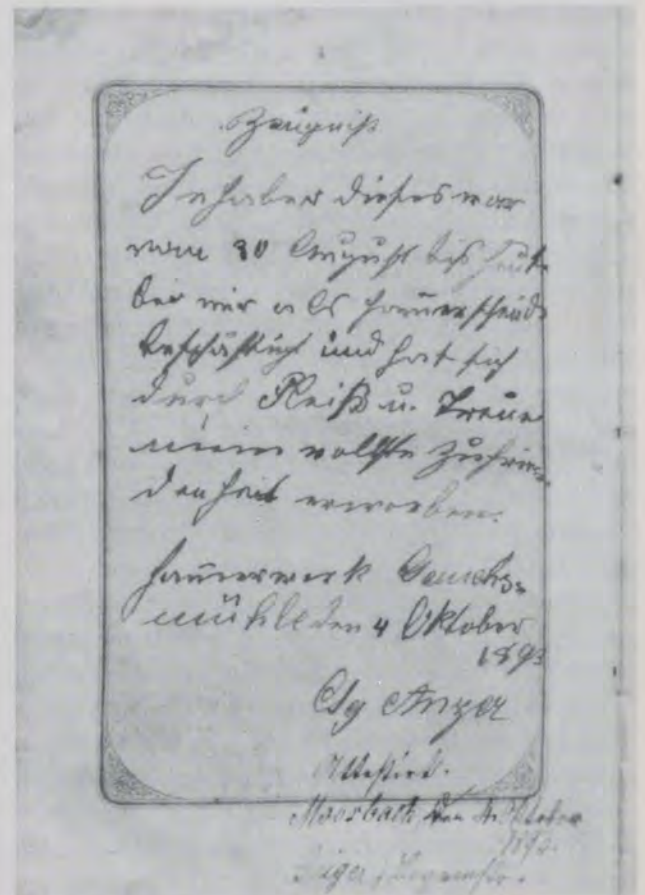 Zeugniß
Inhaber dieses war
vom 30 August bis heute
bei mir als Ham̄erschmid
beschäftigt und hat sich
durch Fleiß u. Treue
meine vollste Zufrie-
denheit erworben.
Ham̄erwerk Gaucks=
mühle den 4 Oktober
1893
Anzer
Attestirt.
Moosbach den 4. Oktober
1893.